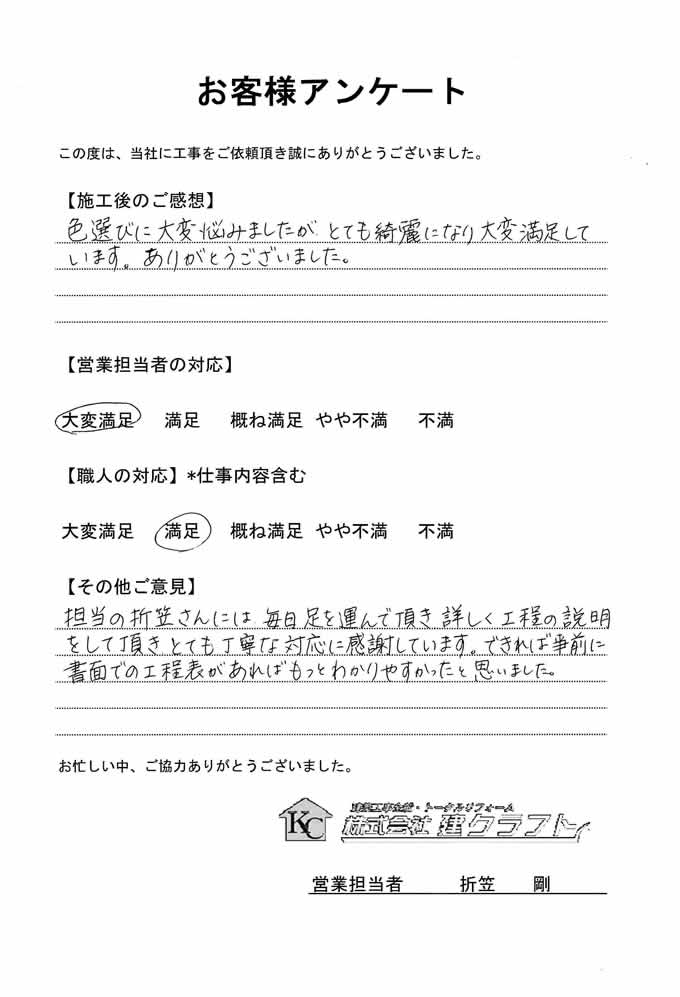 お客様アンケート
この度は、当社に工事をご依頼頂き誠にありがとうございました。
【施工後のご感想】
色選びに大変悩みましたが、とても綺麗になり大変満足して
います。ありがとうございました。
【営業担当者の対応】
大変満足 満足 概ね満足 やや不満 不満
【職人の対応】*仕事内容含む
大変満足 満足 概ね満足 やや不満 不満
【その他ご意見】
担当の折笠さんには 毎日足を運んで頂き 詳しく工程の説明
をして頂きとても丁寧な対応に感謝しています。できれば事前に
書面での工程表があればもっとわかりやすかったと思いました。
お忙しい中、ご協力ありがとうございました。
KC
建築工事全般・トータルリフォーム
株式会社 建クラフト
営業担当者 折笠 剛